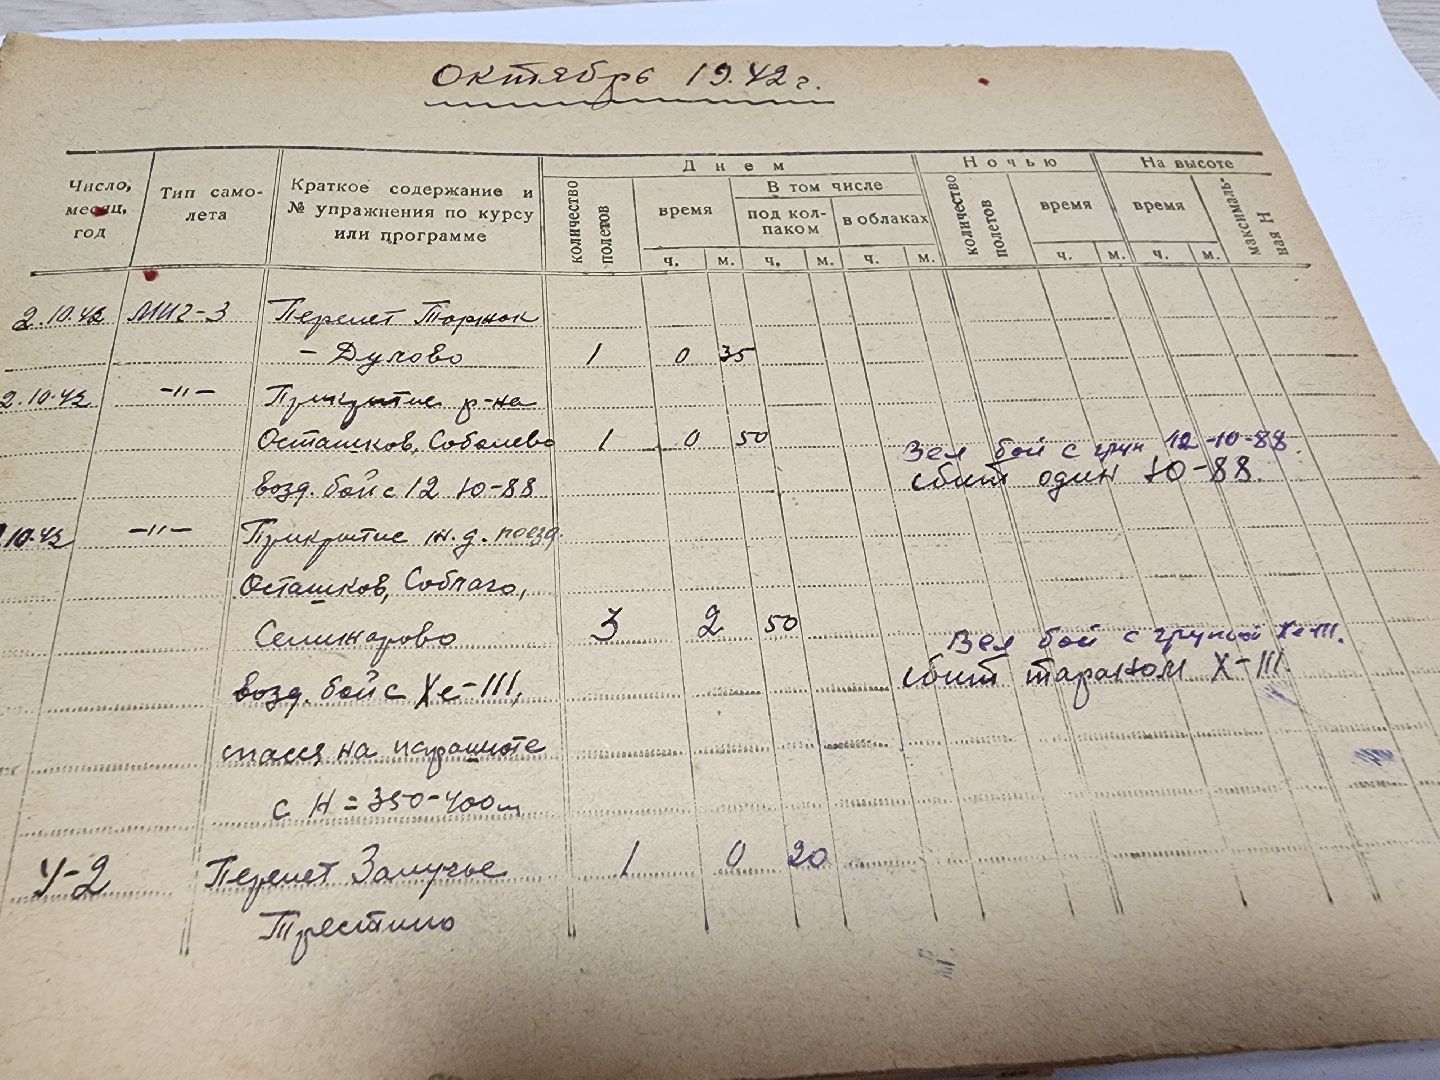 Октябрь 1942 г.
Днем
Ночью
На высоте
Число, месяц, год
Тип само-
лета
Краткое содержание и
№ упражнения по курсу
или программе
количество полетов
время
В том числе
под кол-
паком
в облаках
количество полетов
время
время
максималь-
ная Н
ч. м. ч. м. ч. м. ч. м. ч. м.
2.10.42 МИГ-3 Перелет Торжок
- Дулово 1 0 35
2.10.42 -"- Прикрытие р-на
Осташков, Соболево 1 0 50
возд. бой с 12 Ю-88
Вел бой с груп 12-Ю-88.
сбит один Ю-88.
.10.42 -"- Прикрытие ж.д. поезд.
Осташков, Соблаго,
Селижарово 3 2 50
возд. бой с Хе-111,
Вел бой с групой Хе-111.
сбит тараном Х-111.
спасся на парашюте
с Н = 350-400 м
У-2 Перелет Залучье 1 0 20
Трестино